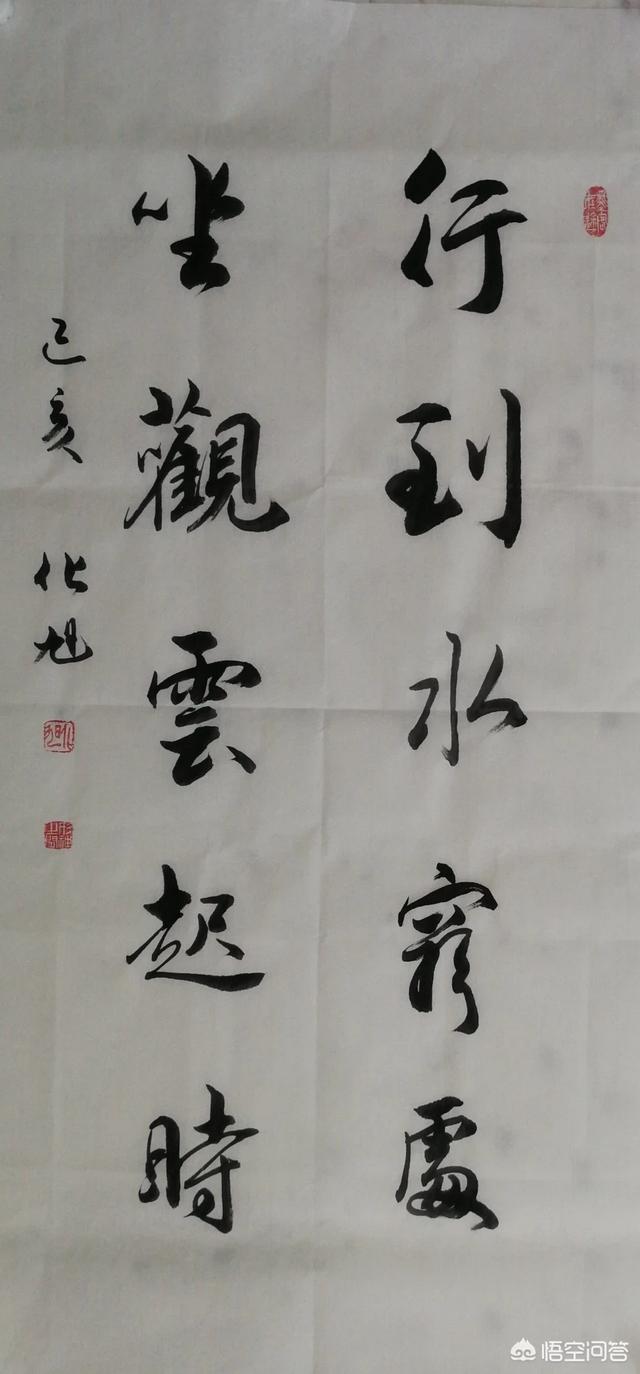 行到水窮處
坐觀雲起時
己亥 化旭
悟空问答